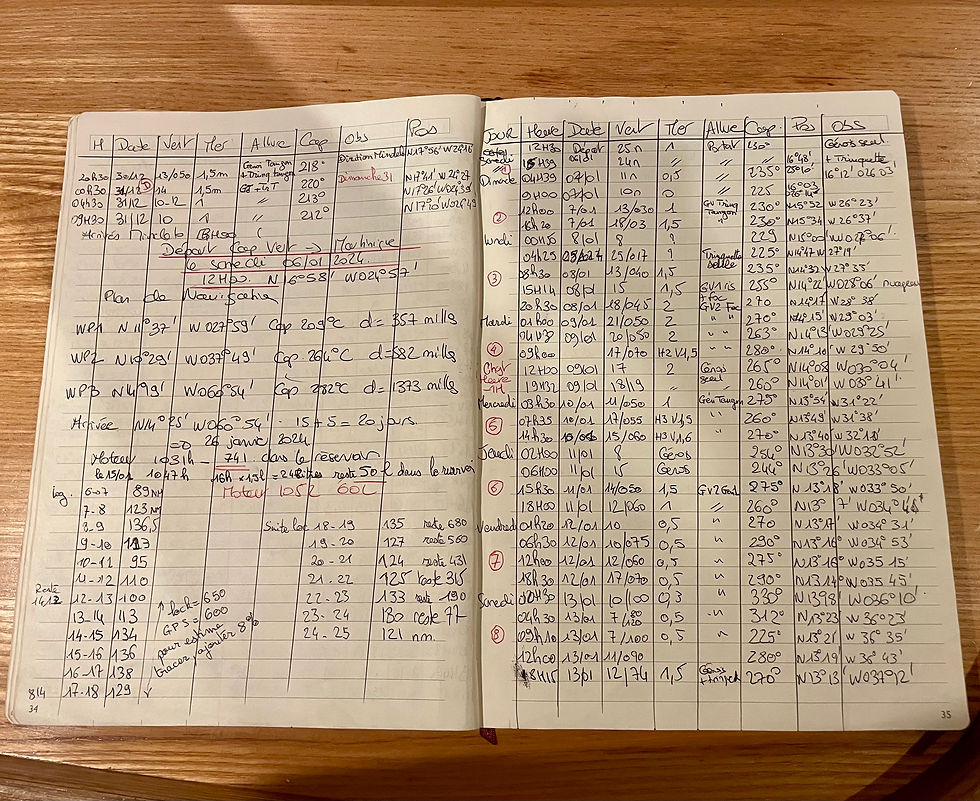 H Date Vent Mer Allure Cap Obs Pos
20h30 30/12 13/050 1,5m Genois Tangon + Tring tangon 218° Direction Mindelo N17°56' W24°16
00h30 31/12 14 1,5m 220° Dimanche 31
04h30 31/12 10-12 1 " 213°
09H30 31/12 10 1 " 212°
Arrivés Mindelo
Départ Cap Vert → Martinique
le samedi 06/01 2024
12H00. N 16°53' W024°57'
Plan de Navigation
WP1 N 11°37' W027°59' Cap 209°C d = 357 mills
WP2 W037°49' Cap 264°C
WP3 W060°54' Cap 282°C d = 1373 mills
Arrivée N14°25' W060°54' . 15+5 = 20 jours.
=> 26 janv 2024
Moteur 1031h - 74l dans le reservoir
le 15/01 1047h 16h x 1,5l = 24 litres reste 50l dans le reservoir
Moteur 1052 60L
Log 6-07 89 NM
7-8 123 NM
8-9 136,5
9-10 113
10-11 95
11-12 110
Reste 1412 12-13 100
13-14 113
14-15 134
15-16 136
16-17 138
814 17-18 129
↑ lock = 650
GPS = 600
pour estime
tracer ajouter 8%
Suite loc 18-19 135 reste 680
19-20 127 reste 560
20-21 124 reste 431
21-22 125 reste 315
22-23 133 reste 190
23-24 130 reste 77
24-25 121 nm.
34
JOUR Heure Date Vent Mer Allure Cap Pos OBS
12H30 Départ 25n 1 Portant 230° Génois seul
Samedi 15H39 06/01 24n " " 235° 16°48' + Trinquette
Dimanche 04H39 07/01 11n 0,5 " " 16°12' 026 03
9H00 07/01 10n 0 " 225
12h00 7/01 13/030 1 GV Tring Tangon 230° N15°52 W26°23'
② 16h20 7/01 18/03 1,5 " 230° N15°34 W26°37'
Lundi 00H30 8/01 8 ? 229 N15°00' W027°06'
04h25 25/017 ? Trinquette seule 225° N14°47 W27°19'
③ 08/01 13/040 1,5 235° N14°32 W27°35'
15H14 08/01 15 1,5 255° N14°22 W028°06'
20h30 08/01 18/045 2 GV2 Foc 270 N14°17 W28°38'
Mardi 01h00 09/01 21/050 2 " " 270° N14°15' W29°03'
04H38 09/01 20/050 2 " " 263° N14°13 W029°25'
④ 09h00 17/070 H2 V1,5 " " 280° N14°10 W29°50'
Chgt Heure -1H 12H00 09/01 17 2 Génois seul 265° N14°08 W030°04'
19H32 09/01 18/19 " 260° N14°01' W030°41'
Mercredi 03h30 10/01 11/050 1 Gen Tangon 275° N13°54 W31°22'
⑤ 07h35 10/01 17/055 H3 V1,5 " 260° N13°49' W31°38'
14H30 10/01 15/060 H3 V1,6 " 270° N13°40 W32°18'
Jeudi 02H00 11/01 8 Géros 254° N13°30 W032°52'
06H00 11/01 15 Géros 244° N13°26' W033°05'
⑥ 15h30 11/01 14/050 1,5 275° N13°18' W033°50'
18H00 11/01 12/060 1 " 260°
Vendredi 01h20 12/01 10 0,5 " 270 N13°17' W034°31'
06H30 12/01 10/075 0,5 " 290° N13°16° W034°53'
⑦ 12h00 12/01 12/060 0,5 " 275° N13°16° W035 15'
18h30 12/01 17/070 0,5 " 290° N13 14° W035 45'
Samedi 13/01 10/100 0,3 " 330° W036°10'
04H30 13/01 0,5 " 312° N13°23 W36°23'
⑧ 09H10 13/01 7/100 0,5 " 225° N13°21 W36°35'
12h00 13/01 11/090 280° N13°19 W36°43'
18H15 13/01 12/74 1,5 270° N13°13' W037°12'
35